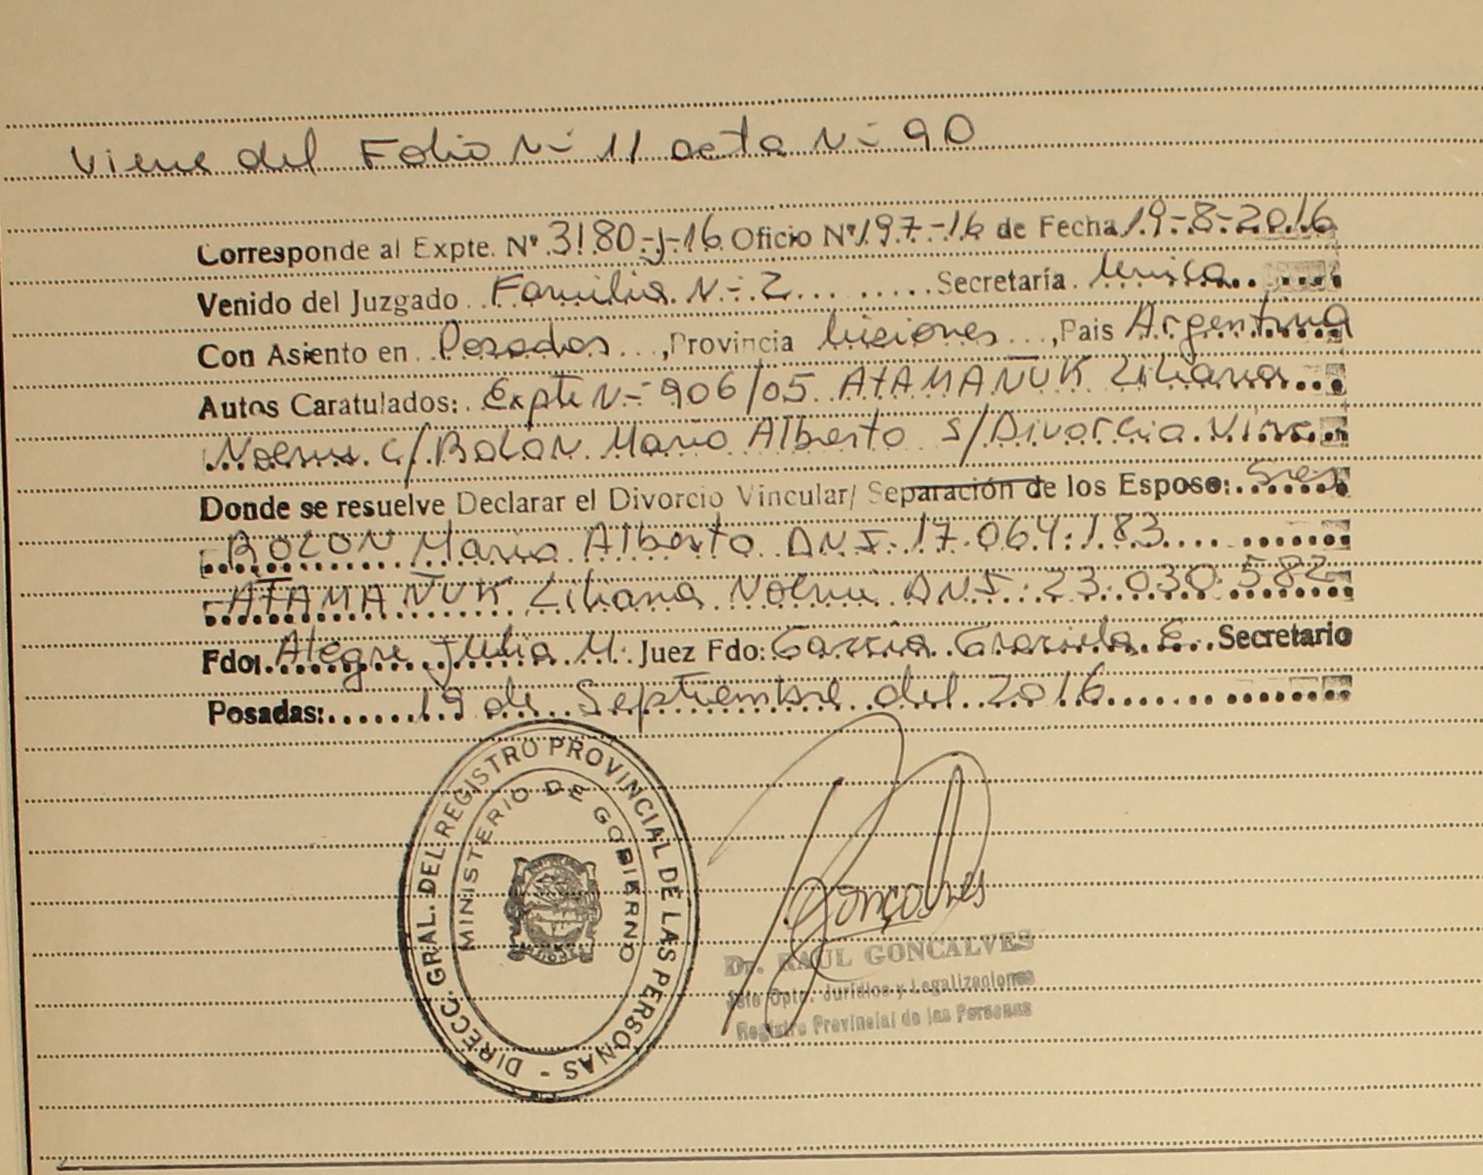 Viene del Folio N- 11 acta N- 90
Corresponde al Expte. Nº 3180-J-16 Oficio Nº 197-16 de Fecha 19-8-2016
Venido del Juzgado Familia N- 2 Secretaría Unica
Con Asiento en Posadas, Provincia Misiones, Pais Argentina
Autos Caratulados: Expte N- 906/05 ATAMAÑUK Liliana
Noemi c/ BOLON Mario Alberto S/ Divorcio Vinc.
Donde se resuelve Declarar el Divorcio Vincular/ Separación de los Esposo: Sres
BOLON Mario Alberto DNI 17.064.183
ATAMAÑUK Liliana Noemi DNI 23.030.582
Fdo: Alegre Julia M. Juez Fdo: Garcia Graciela E. Secretario
Posadas: 19 de Septiembre del 2016
DIRECC. GRAL. DEL REGISTRO PROVINCIAL DE LAS PERSONAS -
MINISTERIO DE GOBIERNO
Goncalves
Dr. RAUL GONCALVES
Jefe Dpto. Jurídico y Legalizaciones
Registro Provincial de las Personas